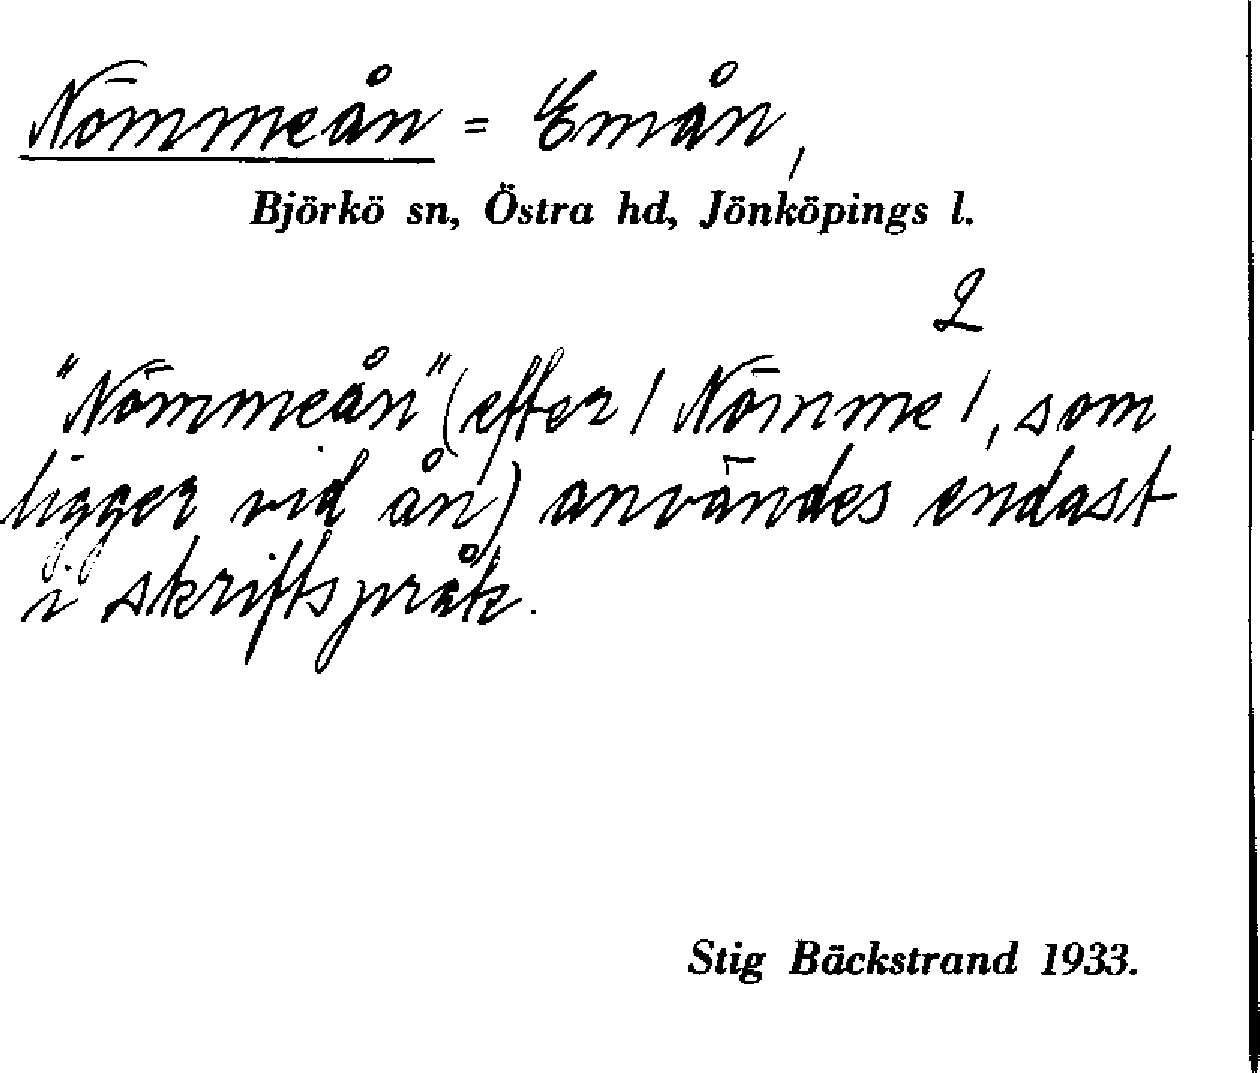 Nömmeån = Emån,
Björkö sn, Östra hd, Jönköpings l.
2
"Nömmeån" (efter / Nömme /, som
ligger vid ån) användes endast
i skriftspråk.
Stig Bäckstrand 1933.